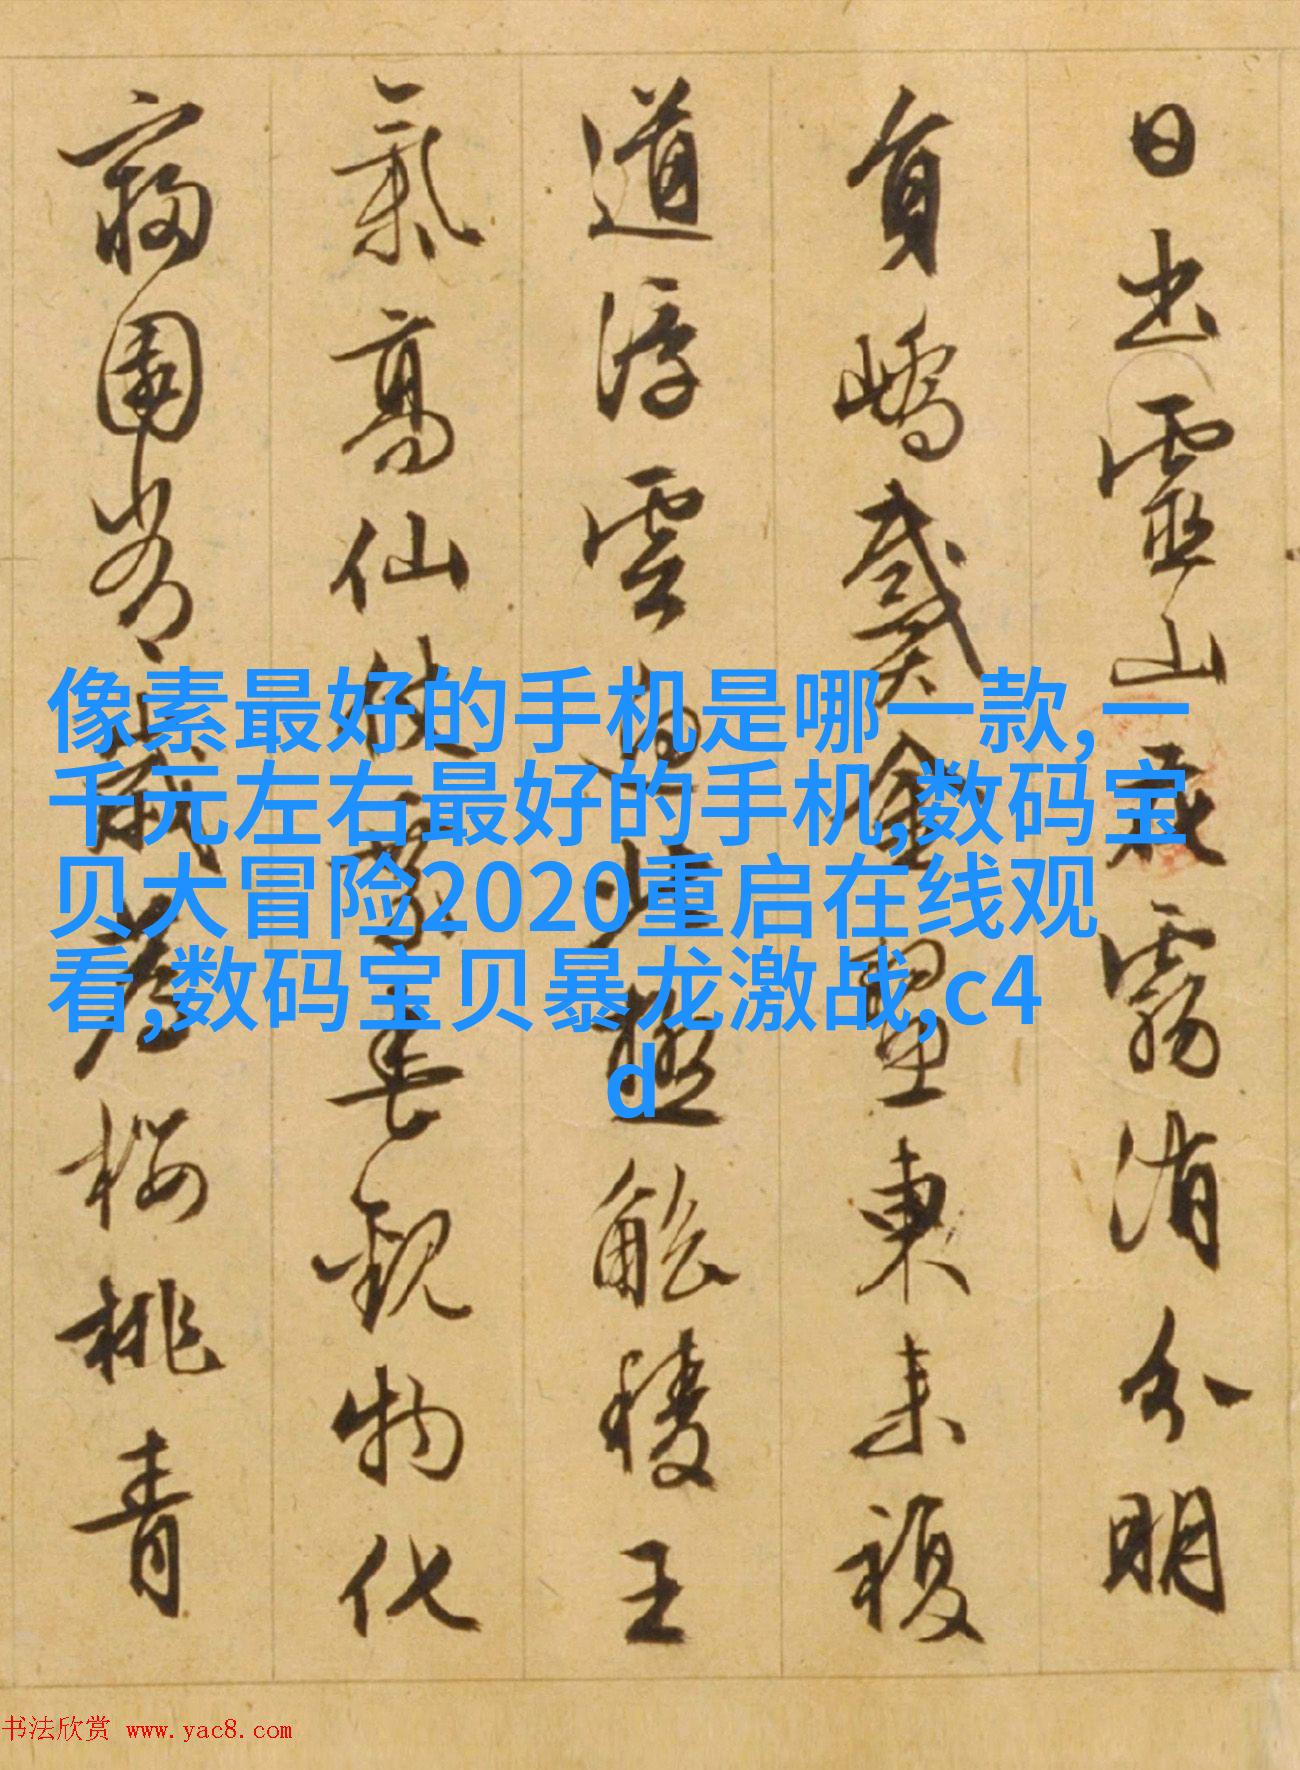 日出靈山霧消分明
嶠金東來復
道浮雲極稜王
氣高仙家觀物化
園桜桃青
像素最好的手机是哪一款,一
千元左右最好的手机,数码宝
贝大冒险2020重启在线观
看,数码宝贝暴龙激战,c4
d
书法欣赏 www.yac8.com